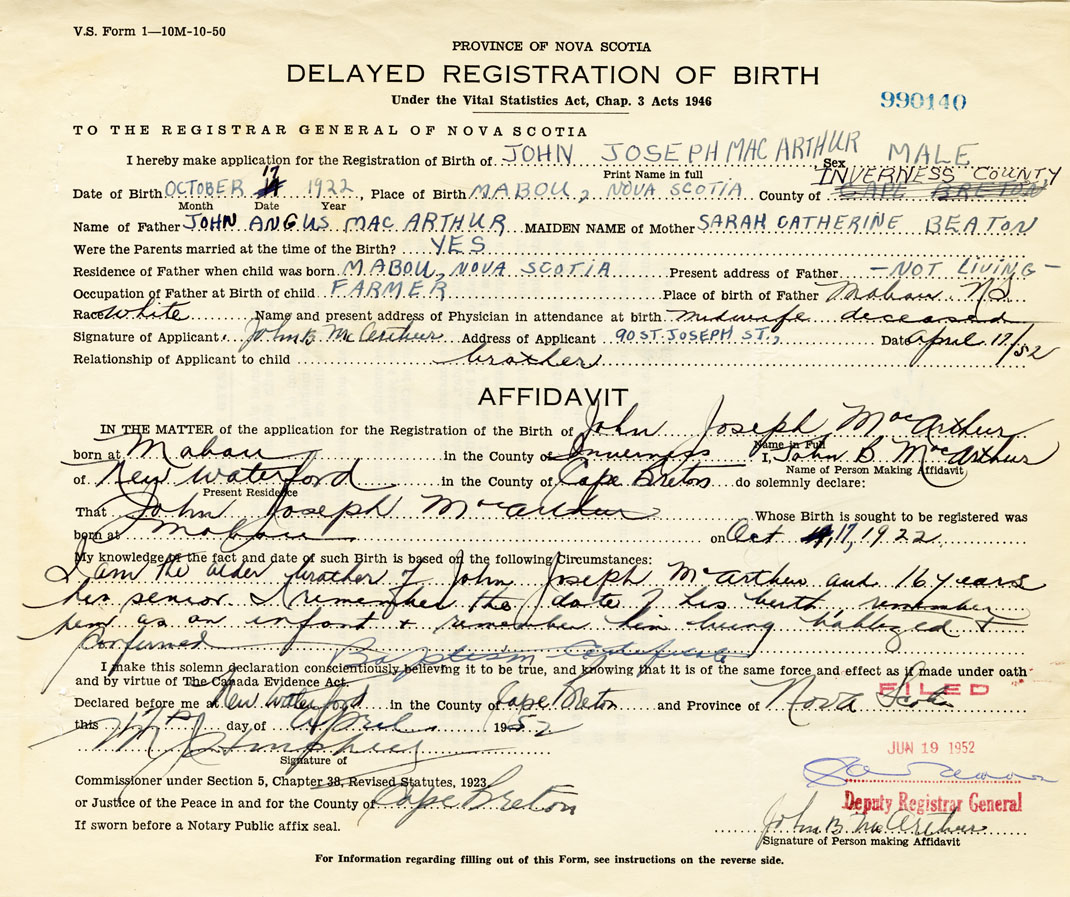 V.S. Form 1—10M-10-50
PROVINCE OF NOVA SCOTIA
DELAYED REGISTRATION OF BIRTH
Under the Vital Statistics Act, Chap. 3 Acts 1946
990140
TO THE REGISTRAR GENERAL OF NOVA SCOTIA
I hereby make application for the Registration of Birth of JOHN JOSEPH MAC ARTHUR Sex MALE
Print Name in full
INVERNESS COUNTY
Date of Birth OCTOBER 17 1922, Place of Birth MABOU, NOVA SCOTIA County of CAPE BRETON
Month Date Year
Name of Father JOHN ANGUS MAC ARTHUR MAIDEN NAME of Mother SARAH CATHERINE BEATON
Were the Parents married at the time of the Birth? YES
Residence of Father when child was born MABOU, NOVA SCOTIA Present address of Father —NOT LIVING—
Occupation of Father at Birth of child FARMER Place of birth of Father Mabou N.S.
Race White Name and present address of Physician in attendance at birth midwife deceased
Signature of Applicant John B McArthur Address of Applicant 90 ST. JOSEPH ST., Date April 17/52
Relationship of Applicant to child brother
AFFIDAVIT
IN THE MATTER of the application for the Registration of the Birth of John Joseph MacArthur
Name in Full
born at Mabou in the County of Inverness I, John B McArthur
Name of Person Making Affidavit
of New Waterford in the County of Cape Breton do solemnly declare:
Present Residence
That John Joseph McArthur Whose Birth is sought to be registered was
born at Mabou on Oct 17, 1922
My knowledge of the fact and date of such Birth is based on the following Circumstances:
I am the older brother of John Joseph McArthur and 16 years
his senior. I remember the date of his birth, remember
him as an infant + remember him being babtized +
confirmed Baptism Certificate
I make this solemn declaration conscientiously believing it to be true, and knowing that it is of the same force and effect as if made under oath
and by virtue of The Canada Evidence Act.
FILED
Declared before me at New Waterford in the County of Cape Breton and Province of Nova Scotia
this 17th day of April 1952
JUN 19 1952
Signature of
Commissioner under Section 5, Chapter 38, Revised Statutes, 1923
or Justice of the Peace in and for the County of Cape Breton
Deputy Registrar General
If sworn before a Notary Public affix seal.
John B McArthur
Signature of Person making Affidavit
For Information regarding filling out of this Form, see instructions on the reverse side.